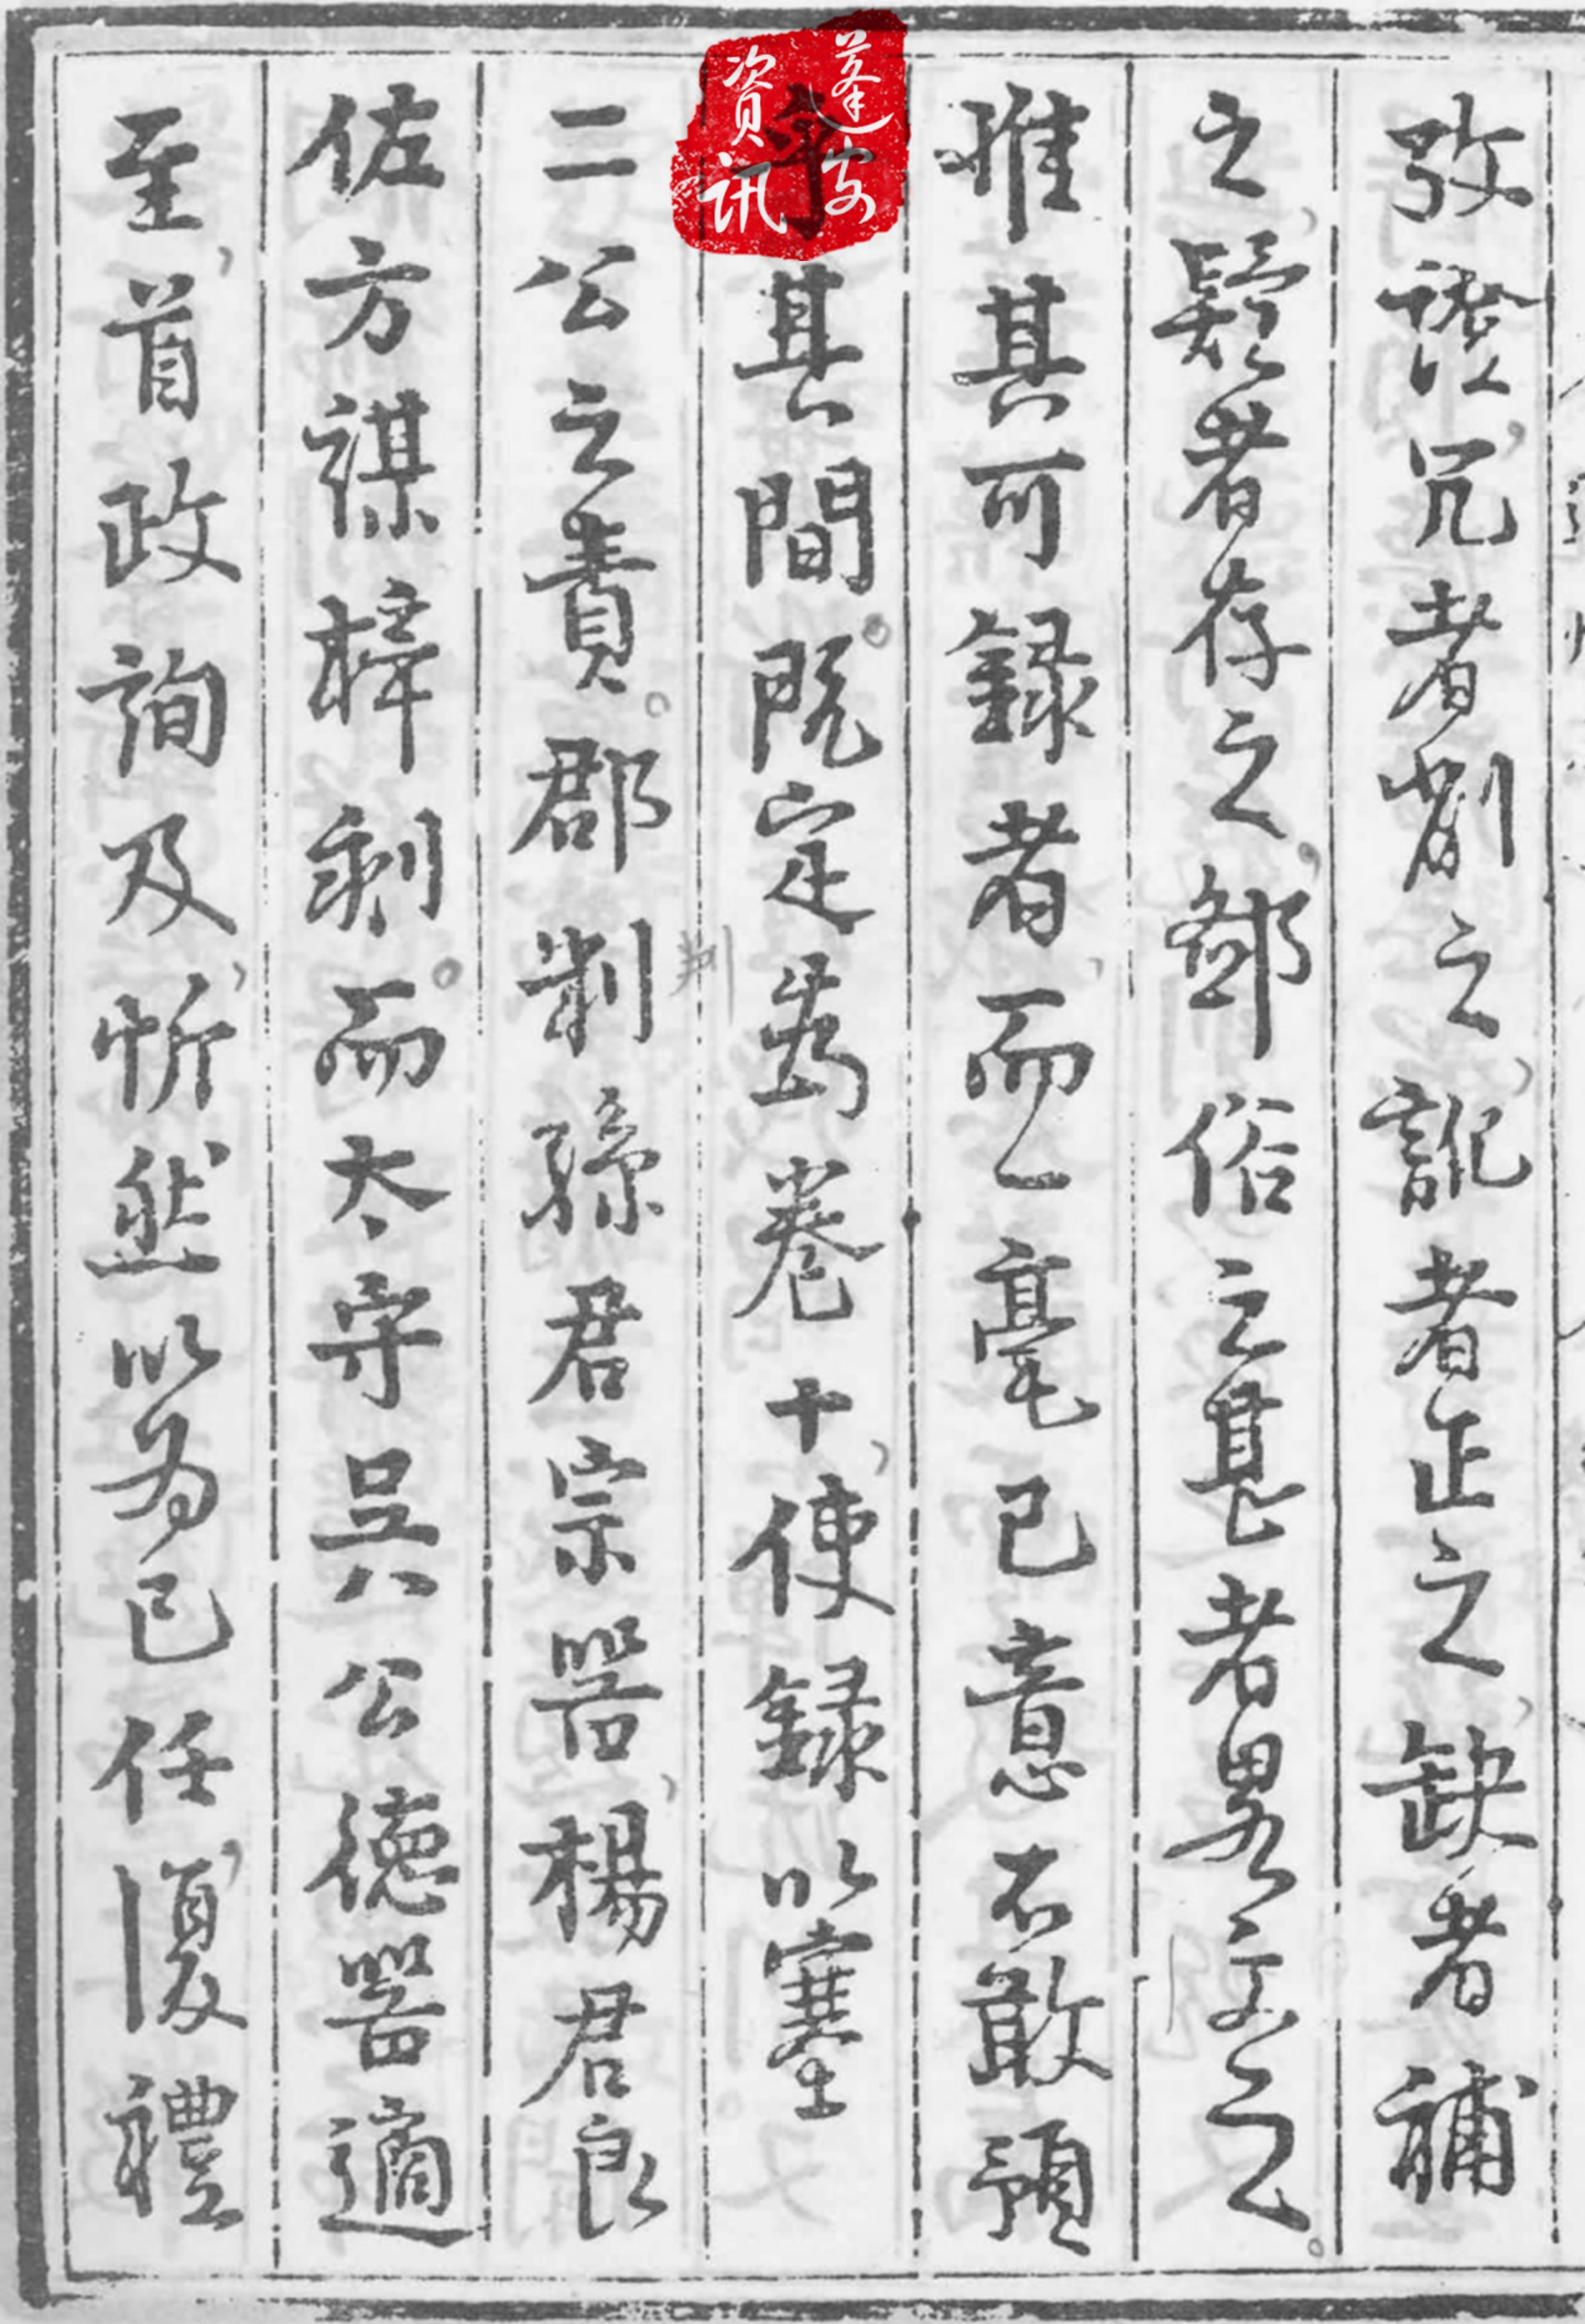 攷證冗者削之訛者正之缺者補
之疑者存之鄙俗之甚者畧文之
惟其可録者而一毫己意不敢預
乎其間既定為卷十使録以塞
二公之責郡判孫君宗器楊君良
佐方謀梓刻而太守吳公德器適
至首政詢及忻然以為己任復禮
蓬安
資訊
判